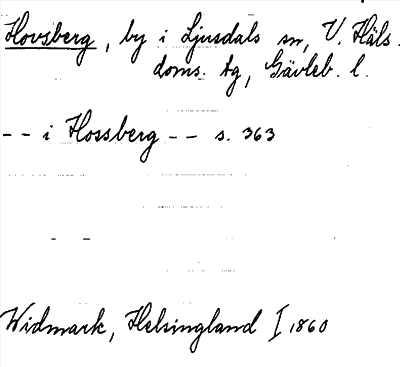 Hovsberg, by i Ljusdals sn, V. Häls.
doms. tg, Gävleb. l.
-- i Hossberg -- s. 363
Widmark, Helsingland I 1860